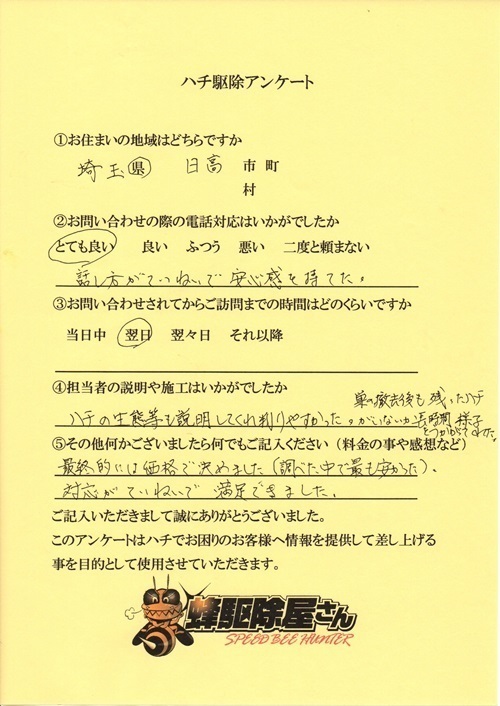 ハチ駆除アンケート
①お住まいの地域はどちらですか
埼玉県 日高 市 町
村
②お問い合わせの際の電話対応はいかがでしたか
とても良い 良い ふつう 悪い 二度と頼まない
話し方がていねいで安心感を持てた。
③お問い合わせされてからご訪問までの時間はどのくらいですか
当日中 翌日 翌々日 それ以降
④担当者の説明や施工はいかがでしたか
巣の撤去後も残ったハチ
ハチの生態等も説明してくれ判りやすかった。がいないか長時間様子
をうかがってくれた。
⑤その他何かございましたら何でもご記入ください（料金の事や感想など）
最終的には価格で決めました（調べた中で最も安かった）。
対応がていねいで満足できました。
ご記入いただきまして誠にありがとうございました。
このアンケートはハチでお困りのお客様へ情報を提供して差し上げる
事を目的として使用させていただきます。
蜂駆除屋さん
SPEED BEE HUNTER